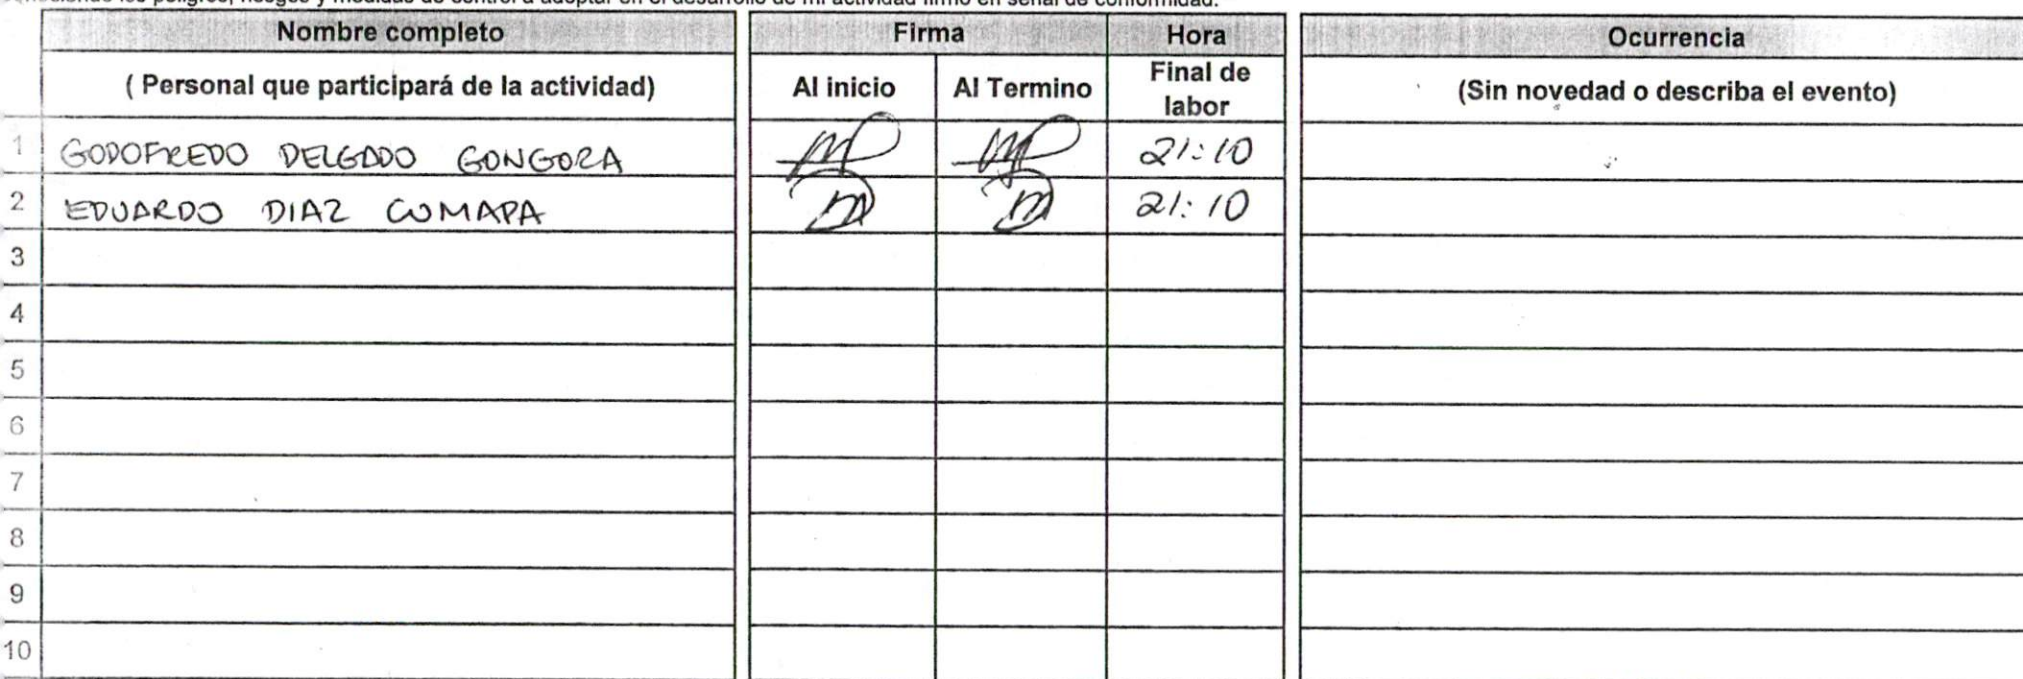 Nombre completo Firma Hora Ocurrencia
( Personal que participará de la actividad) Al inicio Al Termino Final de labor (Sin novedad o describa el evento)
1 GODOFREDO DELGADO GONGORA 21:10
2 EDUARDO DIAZ CUMAPA 21:10
3
4
5
6
7
8
9
10